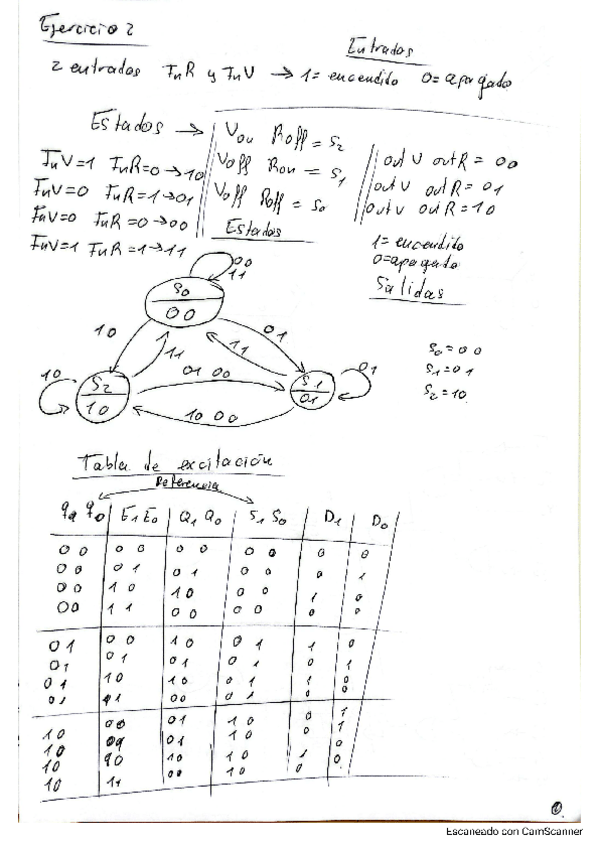 Ejercicio 2
Entradas
2 entradas InR y InV → 1= encendido 0= apagado
Estados →
InV=1 InR=0 → 10
InV=0 InR=1 → 01
InV=0 InR=0 → 00
InV=1 InR=1 → 11
Von Roff = S2
Voff Ron = S1
Voff Roff = S0
Estados
out V out R = 00
out V out R = 01
out V out R = 10
1= encendido
0= apagado
Salidas
00
11
S0
00
10
01
11
11
01 00
10
S2
10
S1
01
01
10 00
S0 = 00
S1 = 01
S2 = 10
Tabla de excitación
Referencia
q1 q0 E1 E0 Q1 Q0 S1 S0 D1 D0
0 0 0 0 0 0 0 0 0 0
0 0 0 1 0 1 0 0 0 1
0 0 1 0 1 0 0 0 1 0
0 0 1 1 0 0 0 0 0 0
0 1 0 0 1 0 0 1 1 0
0 1 0 1 0 1 0 1 0 1
0 1 1 0 1 0 0 1 1 0
0 1 1 0 0 0 1 0 0
1 0 0 0 0 1 1 0 0 1
1 0 0 1 0 1 0 0 1
1 0 0 1 0 1 0 1 0
1 0 1 1 0 0 1 0 0 0
Escaneado con CamScanner